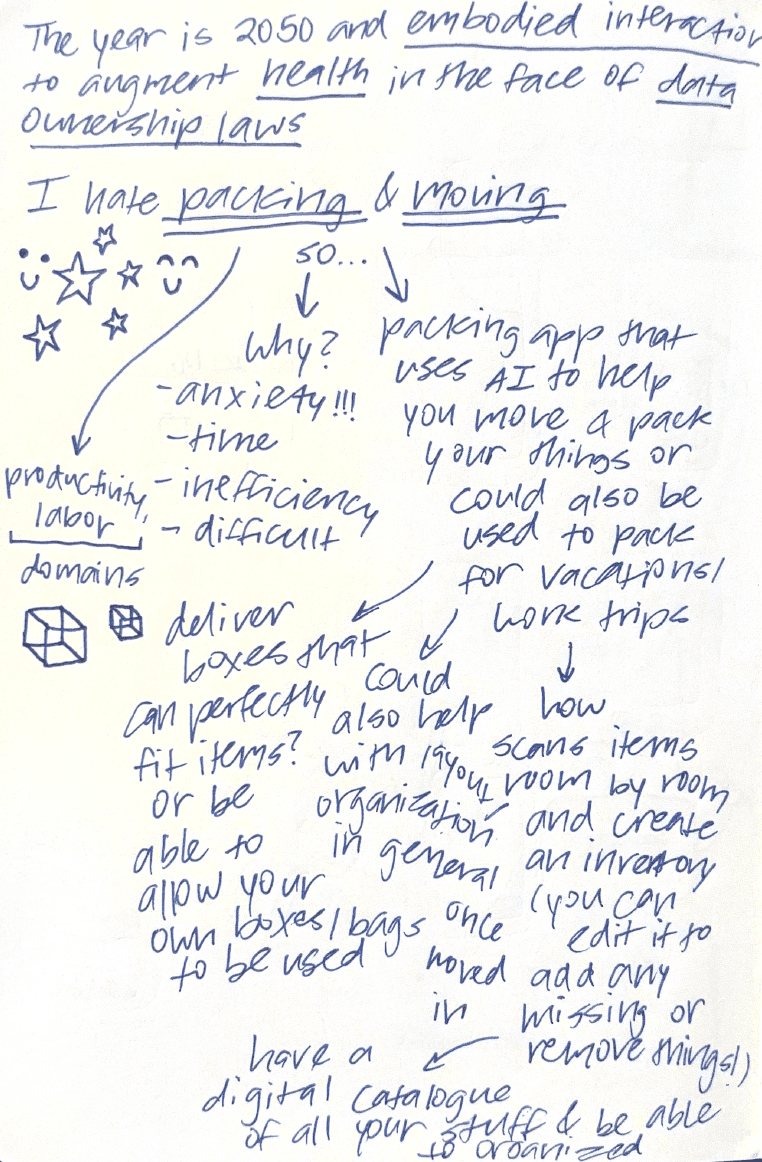 The year is 2050 and embodied interaction
to augment health in the face of data
ownership laws
I hate packing & moving
so...
why?
- anxiety!!!
- time
- inefficiency
- difficult
productivity,
labor
domains
packing app that
uses AI to help
you move & pack
your things or
could also be
used to pack
for vacations/
work trips
deliver
boxes that
can perfectly
fit items?
or be
able to
allow your
own boxes/bags
to be used
could
also help
with layout
organization
in general
once
moved
in
how
scans items
room by room
and create
an inventory
(you can
edit it to
add any
missing or
remove things!)
have a
digital catalogue
of all your stuff & be able
to organized